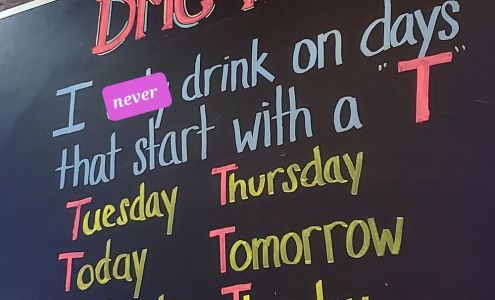 I never drink on days
that start with a "T"
Tuesday Thursday
Today Tomorrow